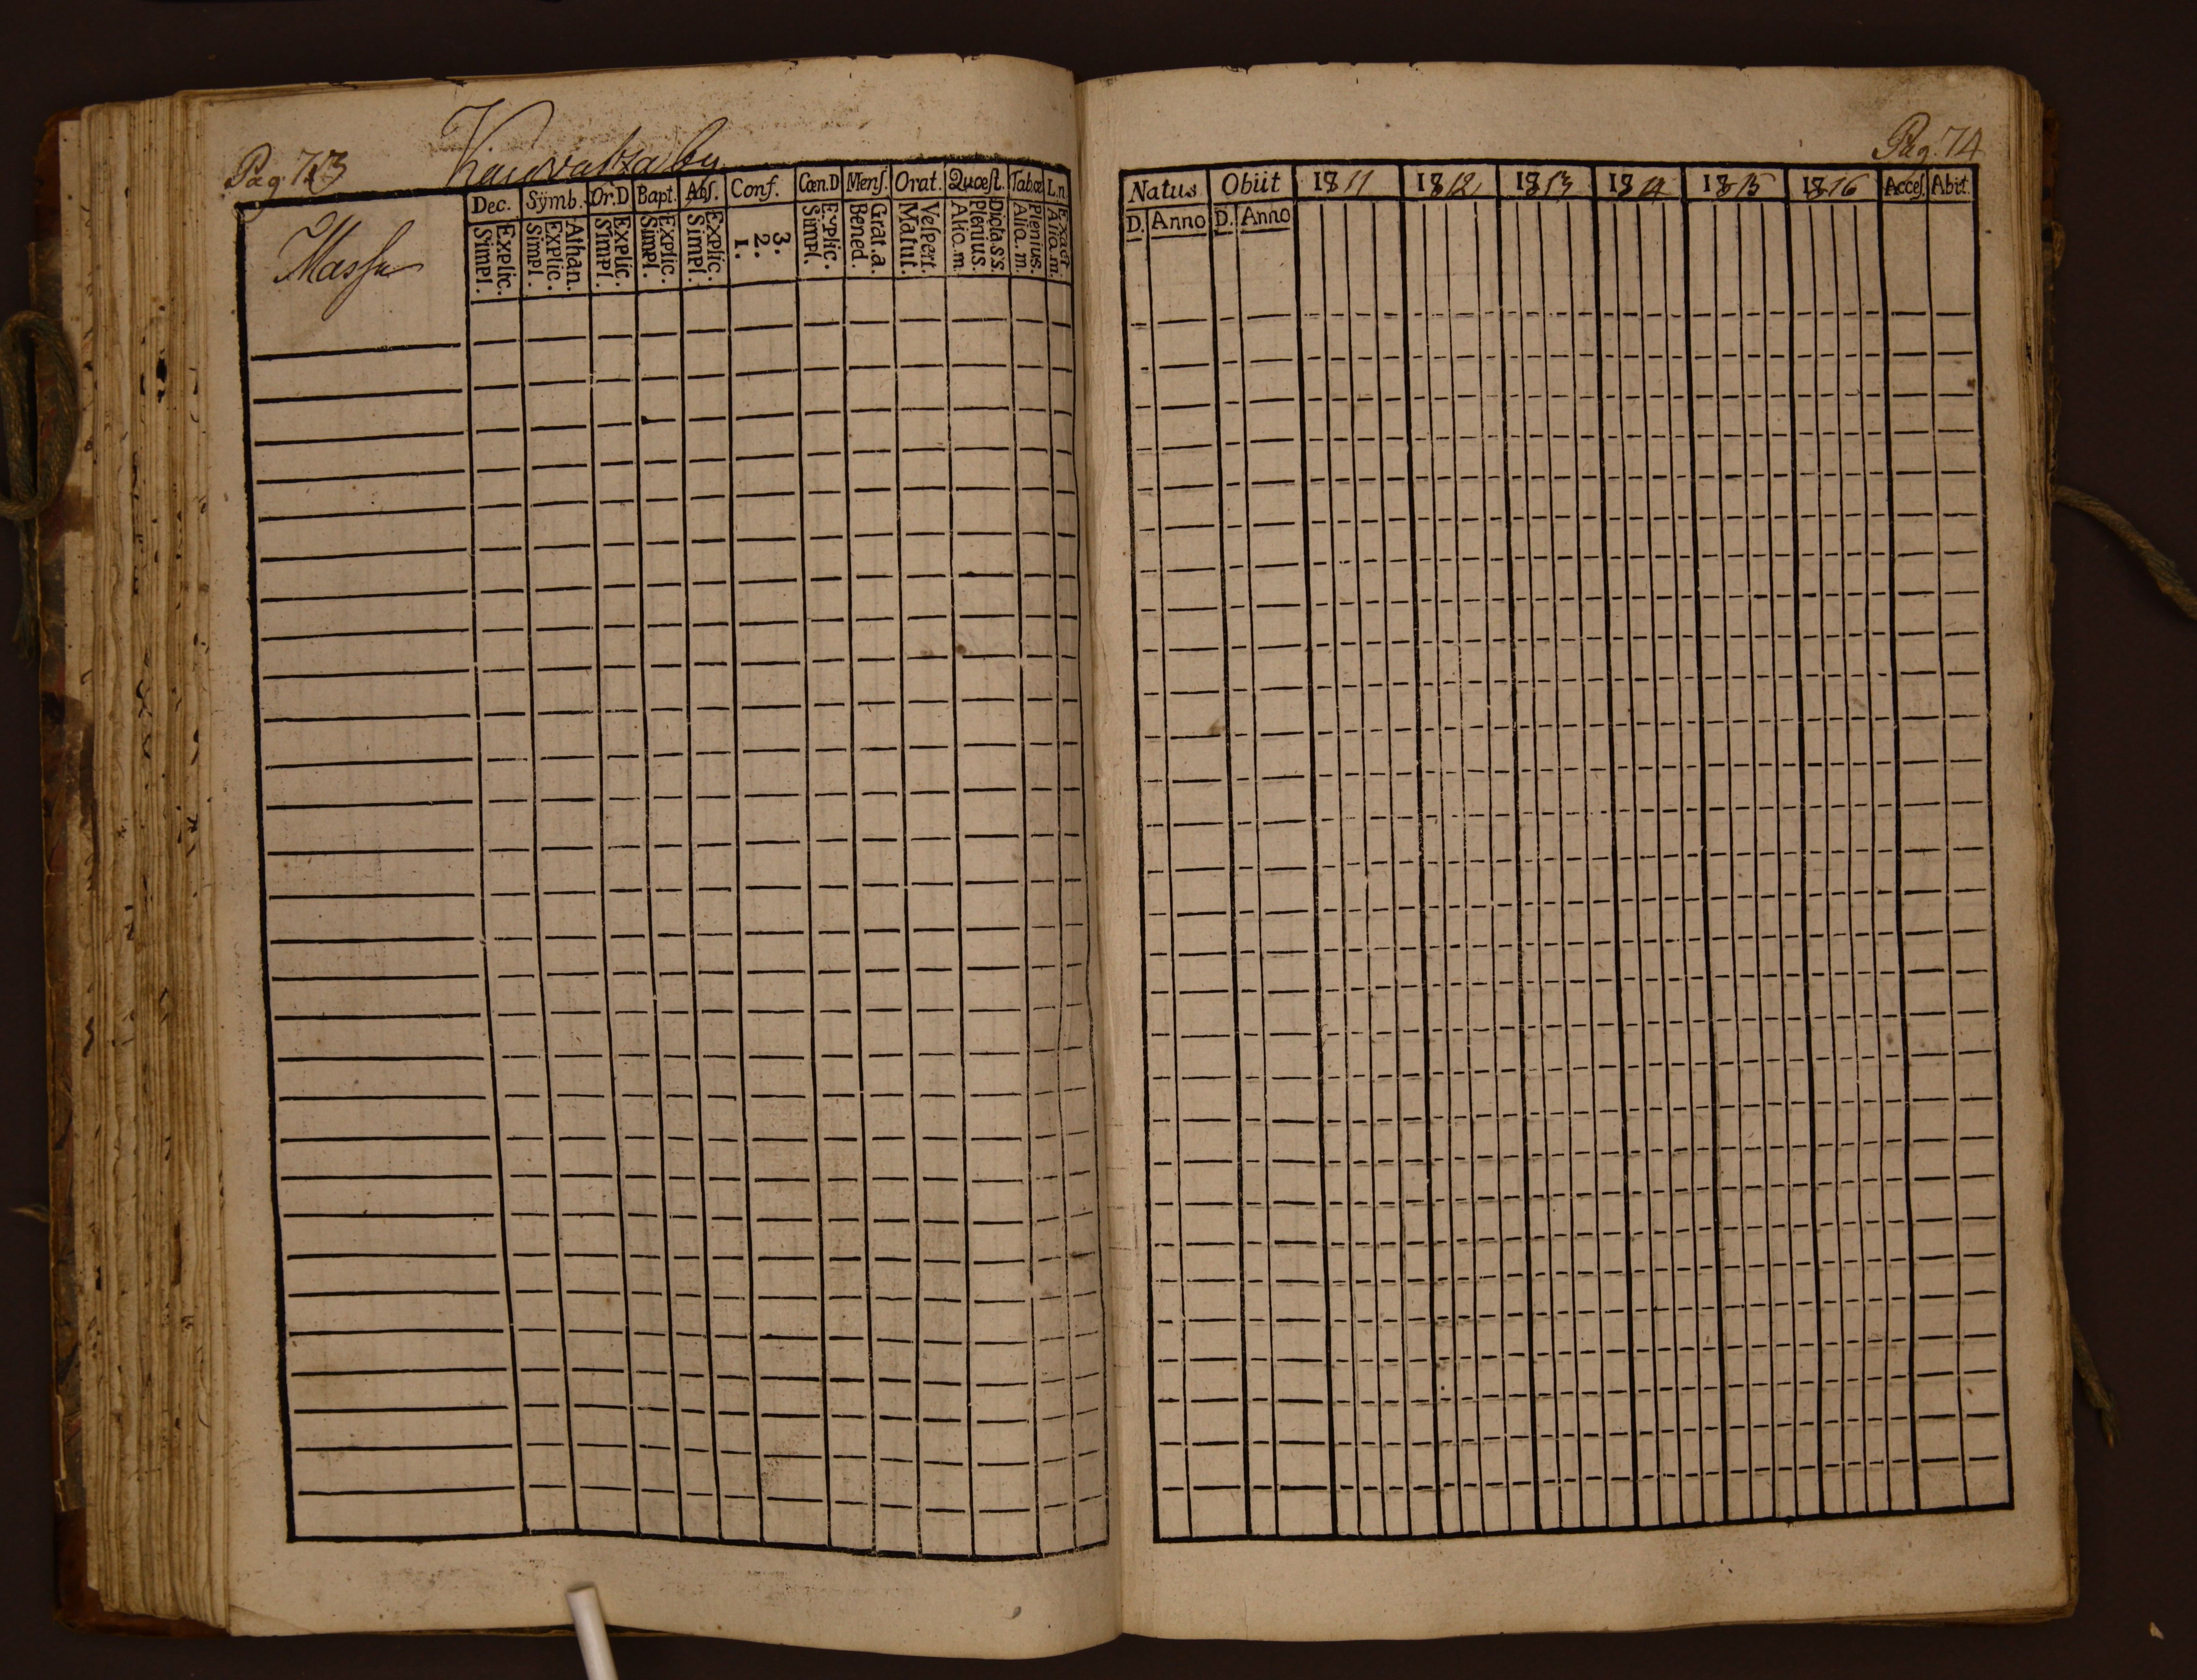 Pag. 73
Dec. Sÿmb. Or. D Bapt. Abſ. Conf. Cœn. D Menſ. Orat. Quœſt. Tabœ L. n.
Simpl. Explic. Simpl. Explic. Athan. Simpl. Explic. Simpl. Explic. Simpl. Explic. 1. 2. 3. Simpl. Explic. Bened. Grat. a. Matut. Veſpert. Alio. m. Plenius. Dicta s s. Alia. m. Plenius. Alia. m. Exact
Pag. 74
Natus Obiit 1811 1812 1813 1814 1815 1816 Acceſ. Abiit
D. Anno D. Anno